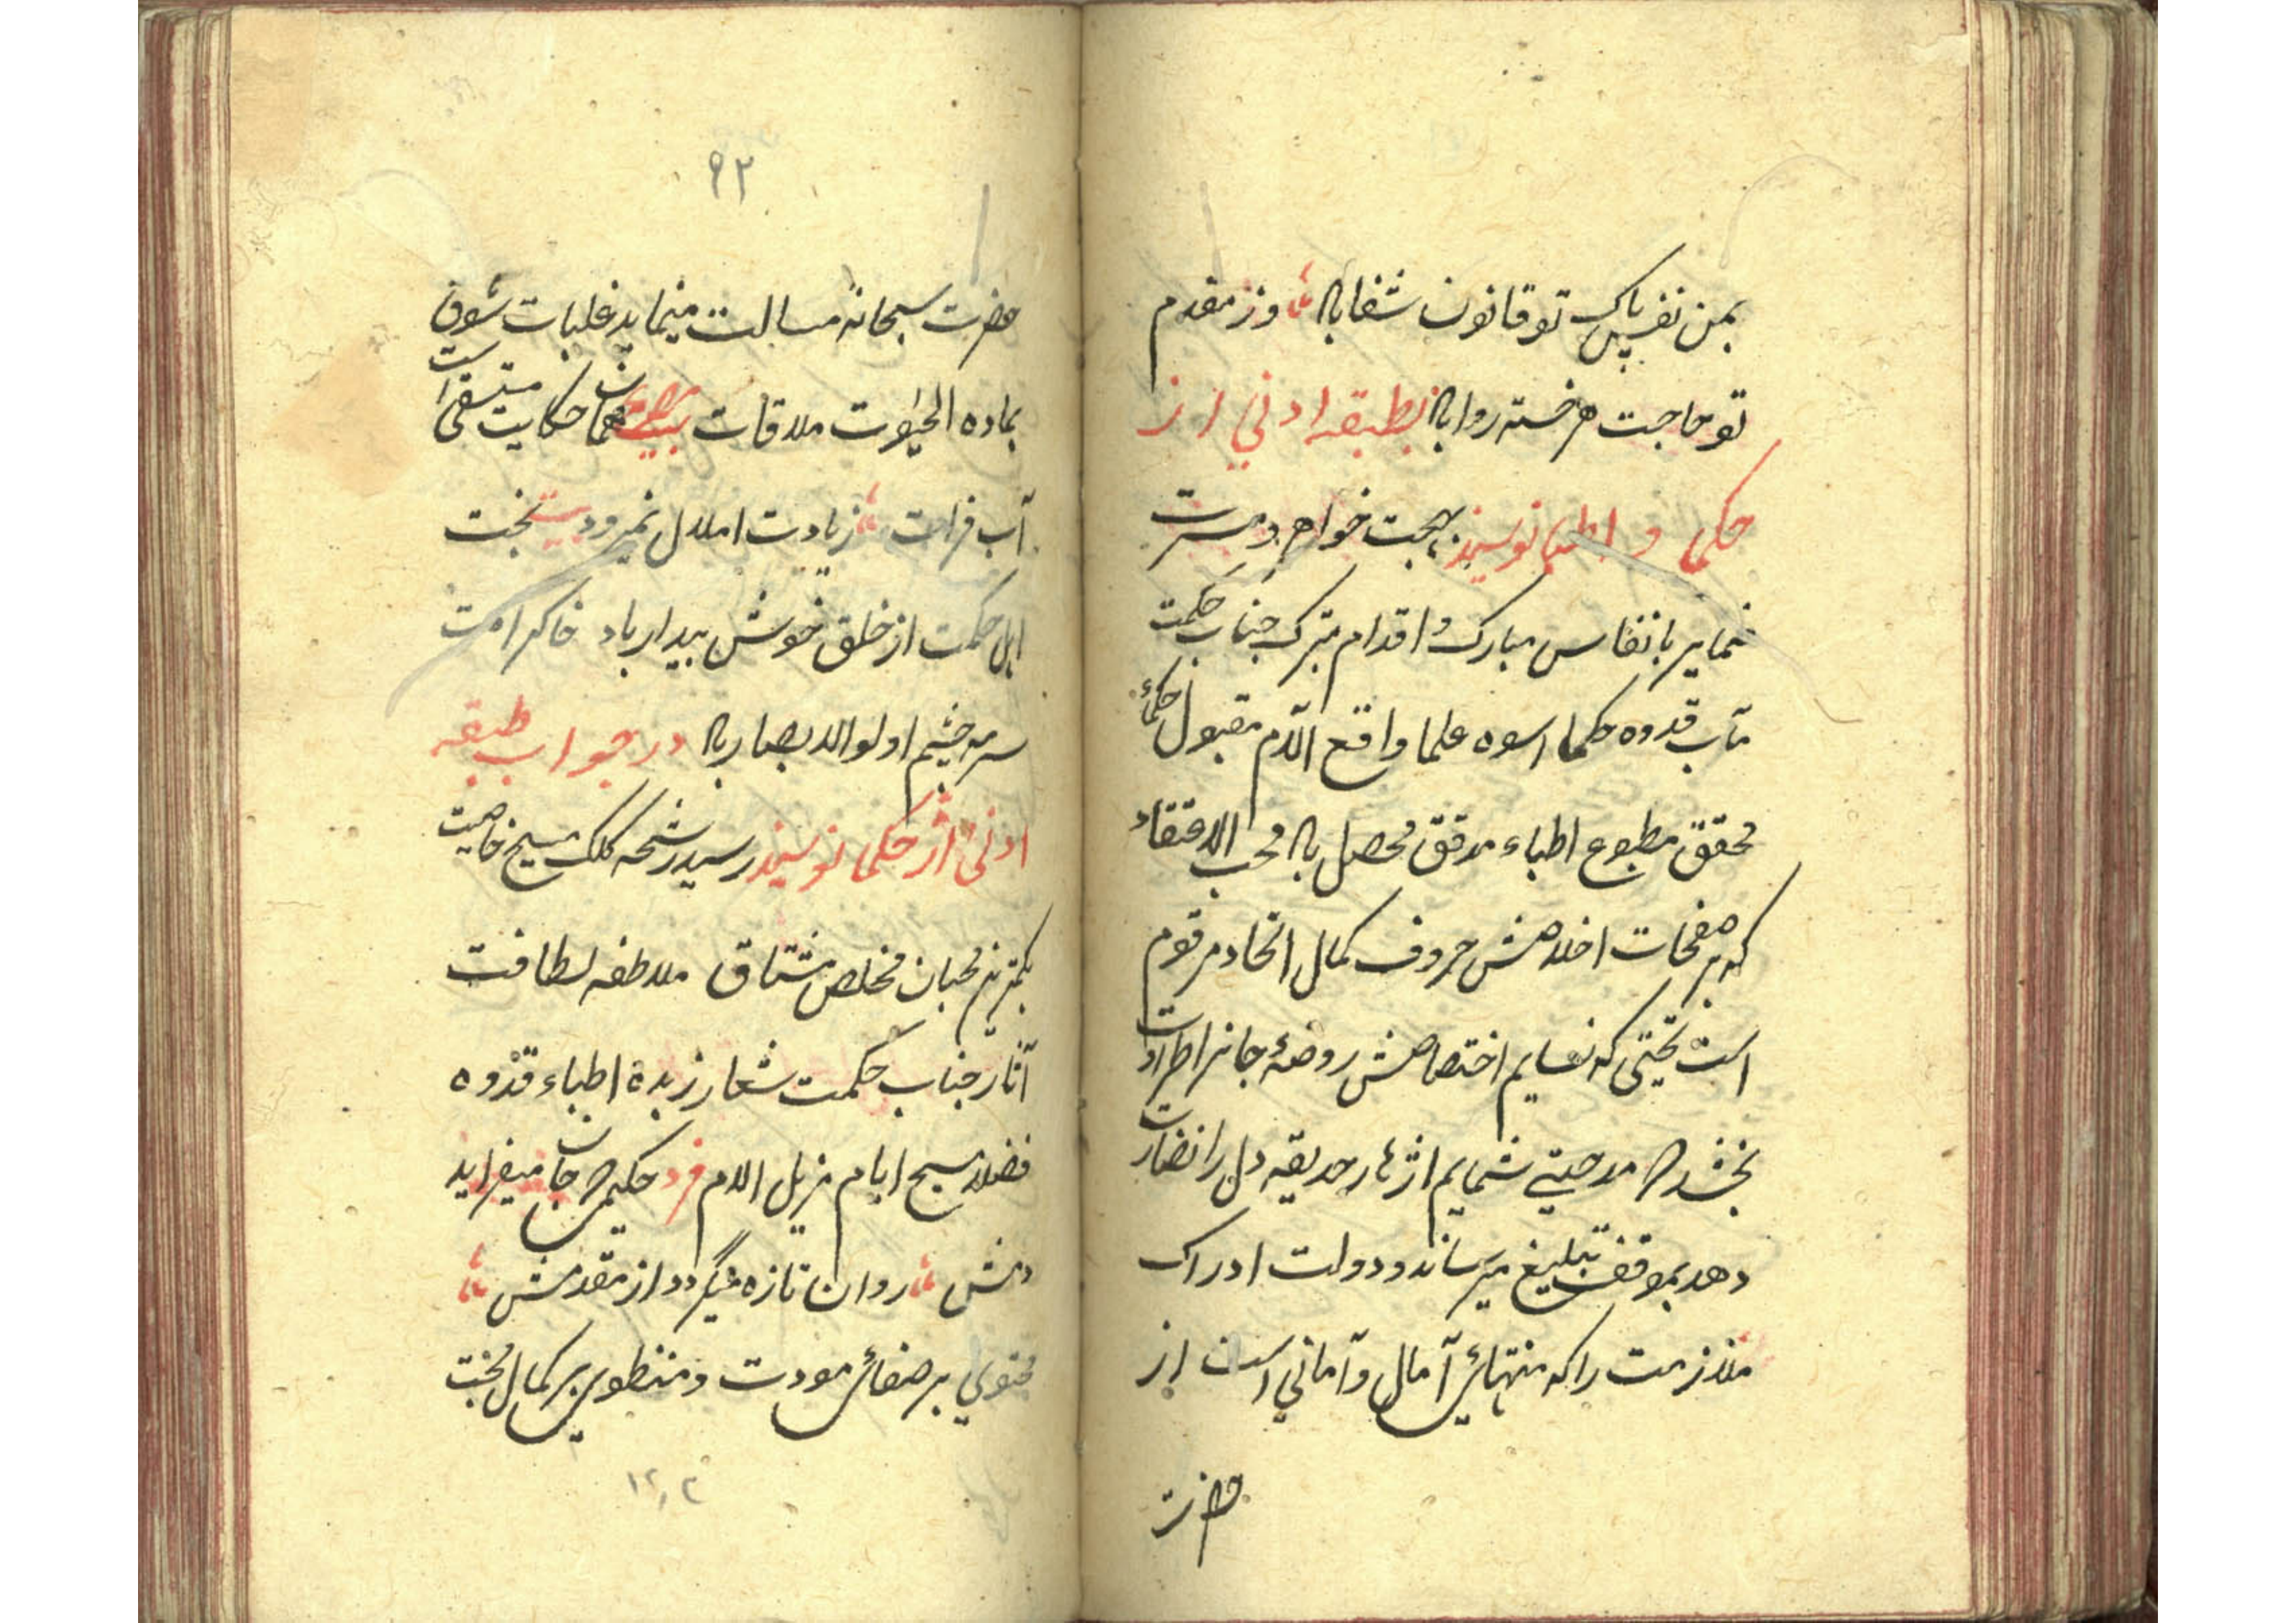 بمن نفس پاک تو قانون شفا باد وز مقدم
تو حاجت هر خسته روا باد بطبقه ادنی از
حکما و اطبا نویسند بهجت خواهد و مسرت
نماید بانفاس مبارک و اقدام متبرک جناب حکمت
مآب قدوه حکما اسوه علما واقع الآلام مقبول حکماء
محقق مطبوع اطباء مدقق محصل باد محب الاعتقاد
که بر صفحات اخلاصش حروف کمال اتحاد مرقوم
است تحیتی که نسایم اختصاصش روضهٔ جانرا طراوت
بخشد و مدحتی شمایم ازهار حدیقه دل را نضارت
دهد بموقف تبلیغ میرساند و دولت ادراک
ملازمت را که منتهای آمال و آمانی است از
حضرت
۹۲
حضرت سبحانه مسالت مینماید غلبات شوق
بماده الحیوت ملاقات بیت همان حکایت مستسقی است
آب فرات زیادت املال نمیرود بخت
اهل حکمت از خلق خوش بیدار باد خاک رامت
سرمه چشم اولو الابصار باد در جواب طبقه
ادنی از حکما نویسند رسید رشحه کلک مسیح خاصیت
بکمترین محبان مخلص مشتاق ملاطفه لطافت
آثار جناب حکمت شعار زبدة اطباء قدوه
فضلا مسیح ایام مزیل الالام فرد حکیمی جان میفزاید
دمش روان تازه میگردد از مقدمش
محتوی بر صفای مودت و منطوی بر کمال محبت
۱۲۰۲